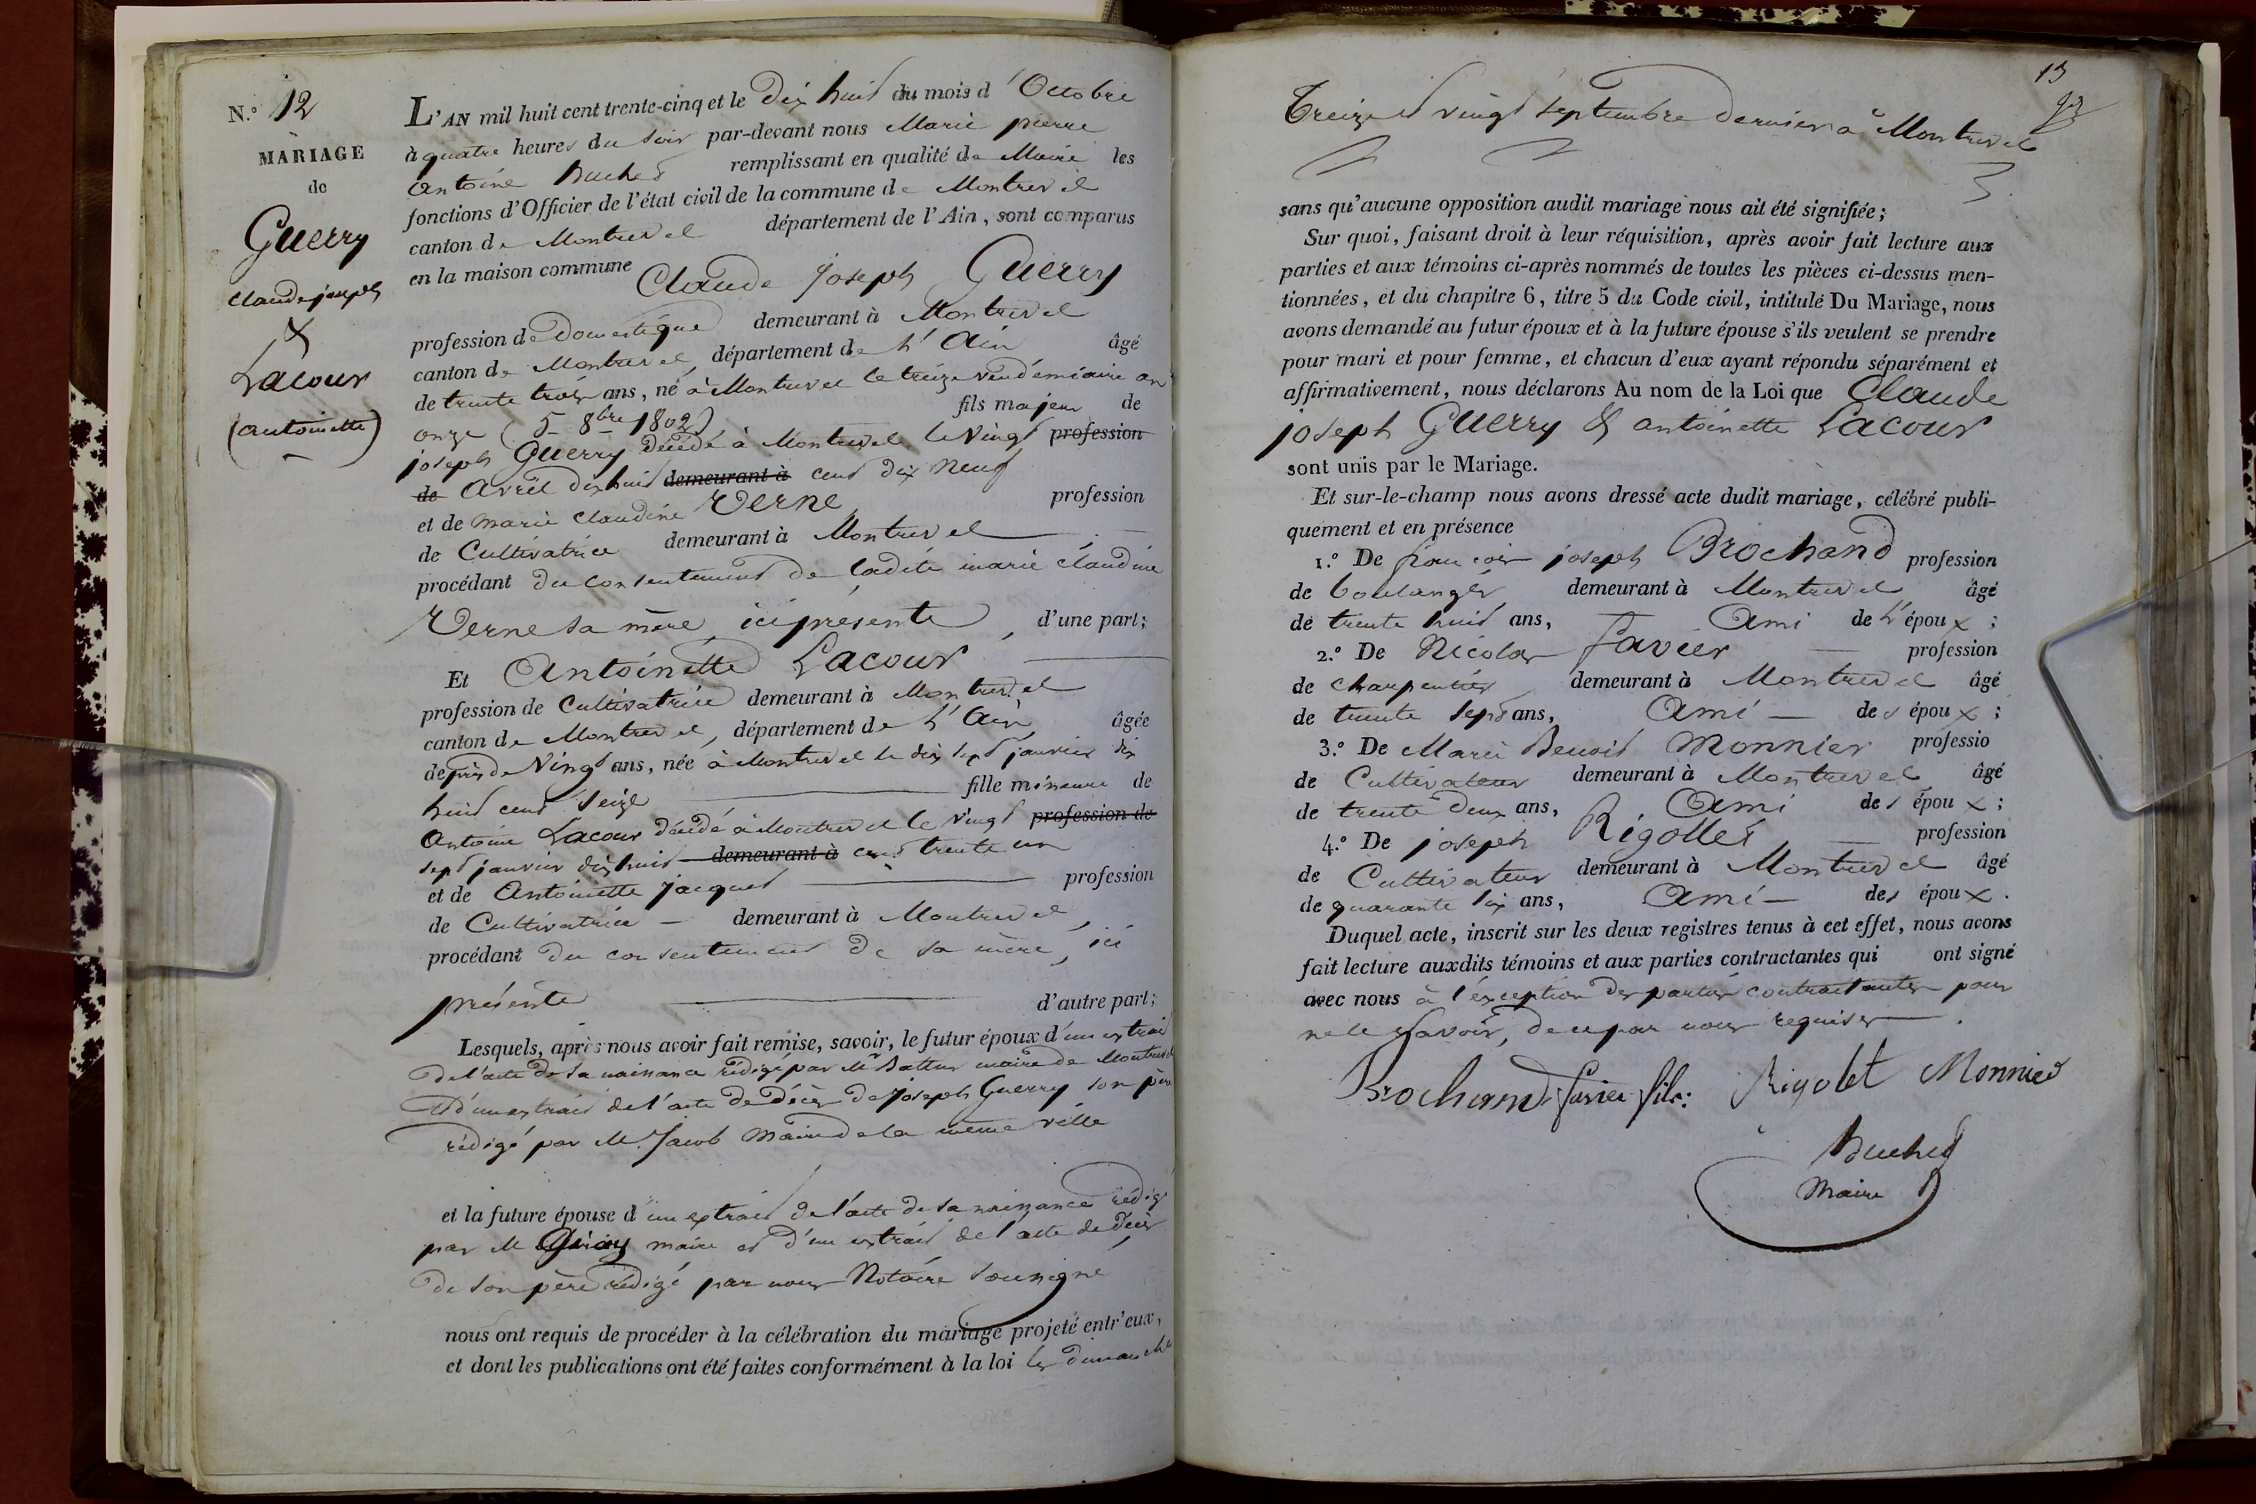 N.º 12
MARIAGE
de
Guerry
Claude joseph
&
Lacour
(antoinette)
L'AN mil huit cent trente-cinq et le Dix huit du mois d'Octobre
à quatre heures du soir par-devant nous Marie pierre
antoine Buchet remplissant en qualité de Maire les
fonctions d'Officier de l'état civil de la commune de Montrevel
canton de Montrevel département de l'Ain, sont comparus
en la maison commune Claude Joseph Guerry
profession de Domestique demeurant à Montrevel
canton de Montrevel, département de L'Ain âgé
de trente trois ans, né à Montrevel le treize vendémiaire an
onze (5 8bre 1802) fils majeur de
joseph Guerry décédé à Montrevel le vingt profession
de avril dix huit demeurant à cent dix neuf
et de marie claudine Verne profession
de Cultivatrice demeurant à Montrevel
procédant du consentement de ladite marie claudine
Verne sa mère, ici présente, d'une part;
Et Antoinette Lacour
profession de Cultivatrice demeurant à Montrevel
canton de Montrevel, département de L'Ain âgée
de près de Vingt ans, née à Montrevel le dix sept janvier dix
huit cent seize fille mineure de
Antoine Lacour décédé à Montrevel le vingt profession de
sept janvier dix huit demeurant à cent trente un
et de Antoinette jacquet profession
de Cultivatrice demeurant à Montrevel,
procédant du consentement de sa mère, ici
présente d'autre part;
Lesquels, après nous avoir fait remise, savoir, le futur époux d'un extrait
de l'acte de sa naissance rédigé par Mr maire de Montrevel
et d'un extrait de l'acte de décès de joseph Guerry son père
rédigé par M. Jacob Maire de la même ville
et la future épouse d'un extrait de l'acte de sa naissance rédigé
par M maire et d'un extrait de l'acte de décès
de son père rédigé par nous Notaire soussigné
nous ont requis de procéder à la célébration du mariage projeté entr'eux,
et dont les publications ont été faites conformément à la loi les dimanche
13
Treize et vingt septembre dernier à Montrevel
sans qu'aucune opposition audit mariage nous ait été signifiée;
Sur quoi, faisant droit à leur réquisition, après avoir fait lecture aux
parties et aux témoins ci-après nommés de toutes les pièces ci-dessus men-
tionnées, et du chapitre 6, titre 5 du Code civil, intitulé Du Mariage, nous
avons demandé au futur époux et à la future épouse s'ils veulent se prendre
pour mari et pour femme, et chacun d'eux ayant répondu séparément et
affirmativement, nous déclarons Au nom de la Loi que Claude
joseph Guerry & antoinette Lacour
sont unis par le Mariage.
Et sur-le-champ nous avons dressé acte dudit mariage, célébré publi-
quement et en présence
1.º De françois joseph Brochand profession
de boulanger demeurant à Montrevel âgé
de trente huit ans, Ami de L'époux;
2.º De Nicolas favier profession
de charpentier demeurant à Montrevel âgé
de trente sept ans, Ami des époux;
3.º De Marie Benoit Monnier professio
de Cultivateur demeurant à Montrevel âgé
de trente deux ans, Ami des époux;
4.º De joseph Rigollet profession
de Cultivateur demeurant à Montrevel âgé
de quarante six ans, Ami des époux.
Duquel acte, inscrit sur les deux registres tenus à cet effet, nous avons
fait lecture auxdits témoins et aux parties contractantes qui ont signé
avec nous à l'exception des parties contractantes pour
ne le savoir, de ce par nous requises.
Brochand favier fils: Rigolet Monnier
Buchet
Maire